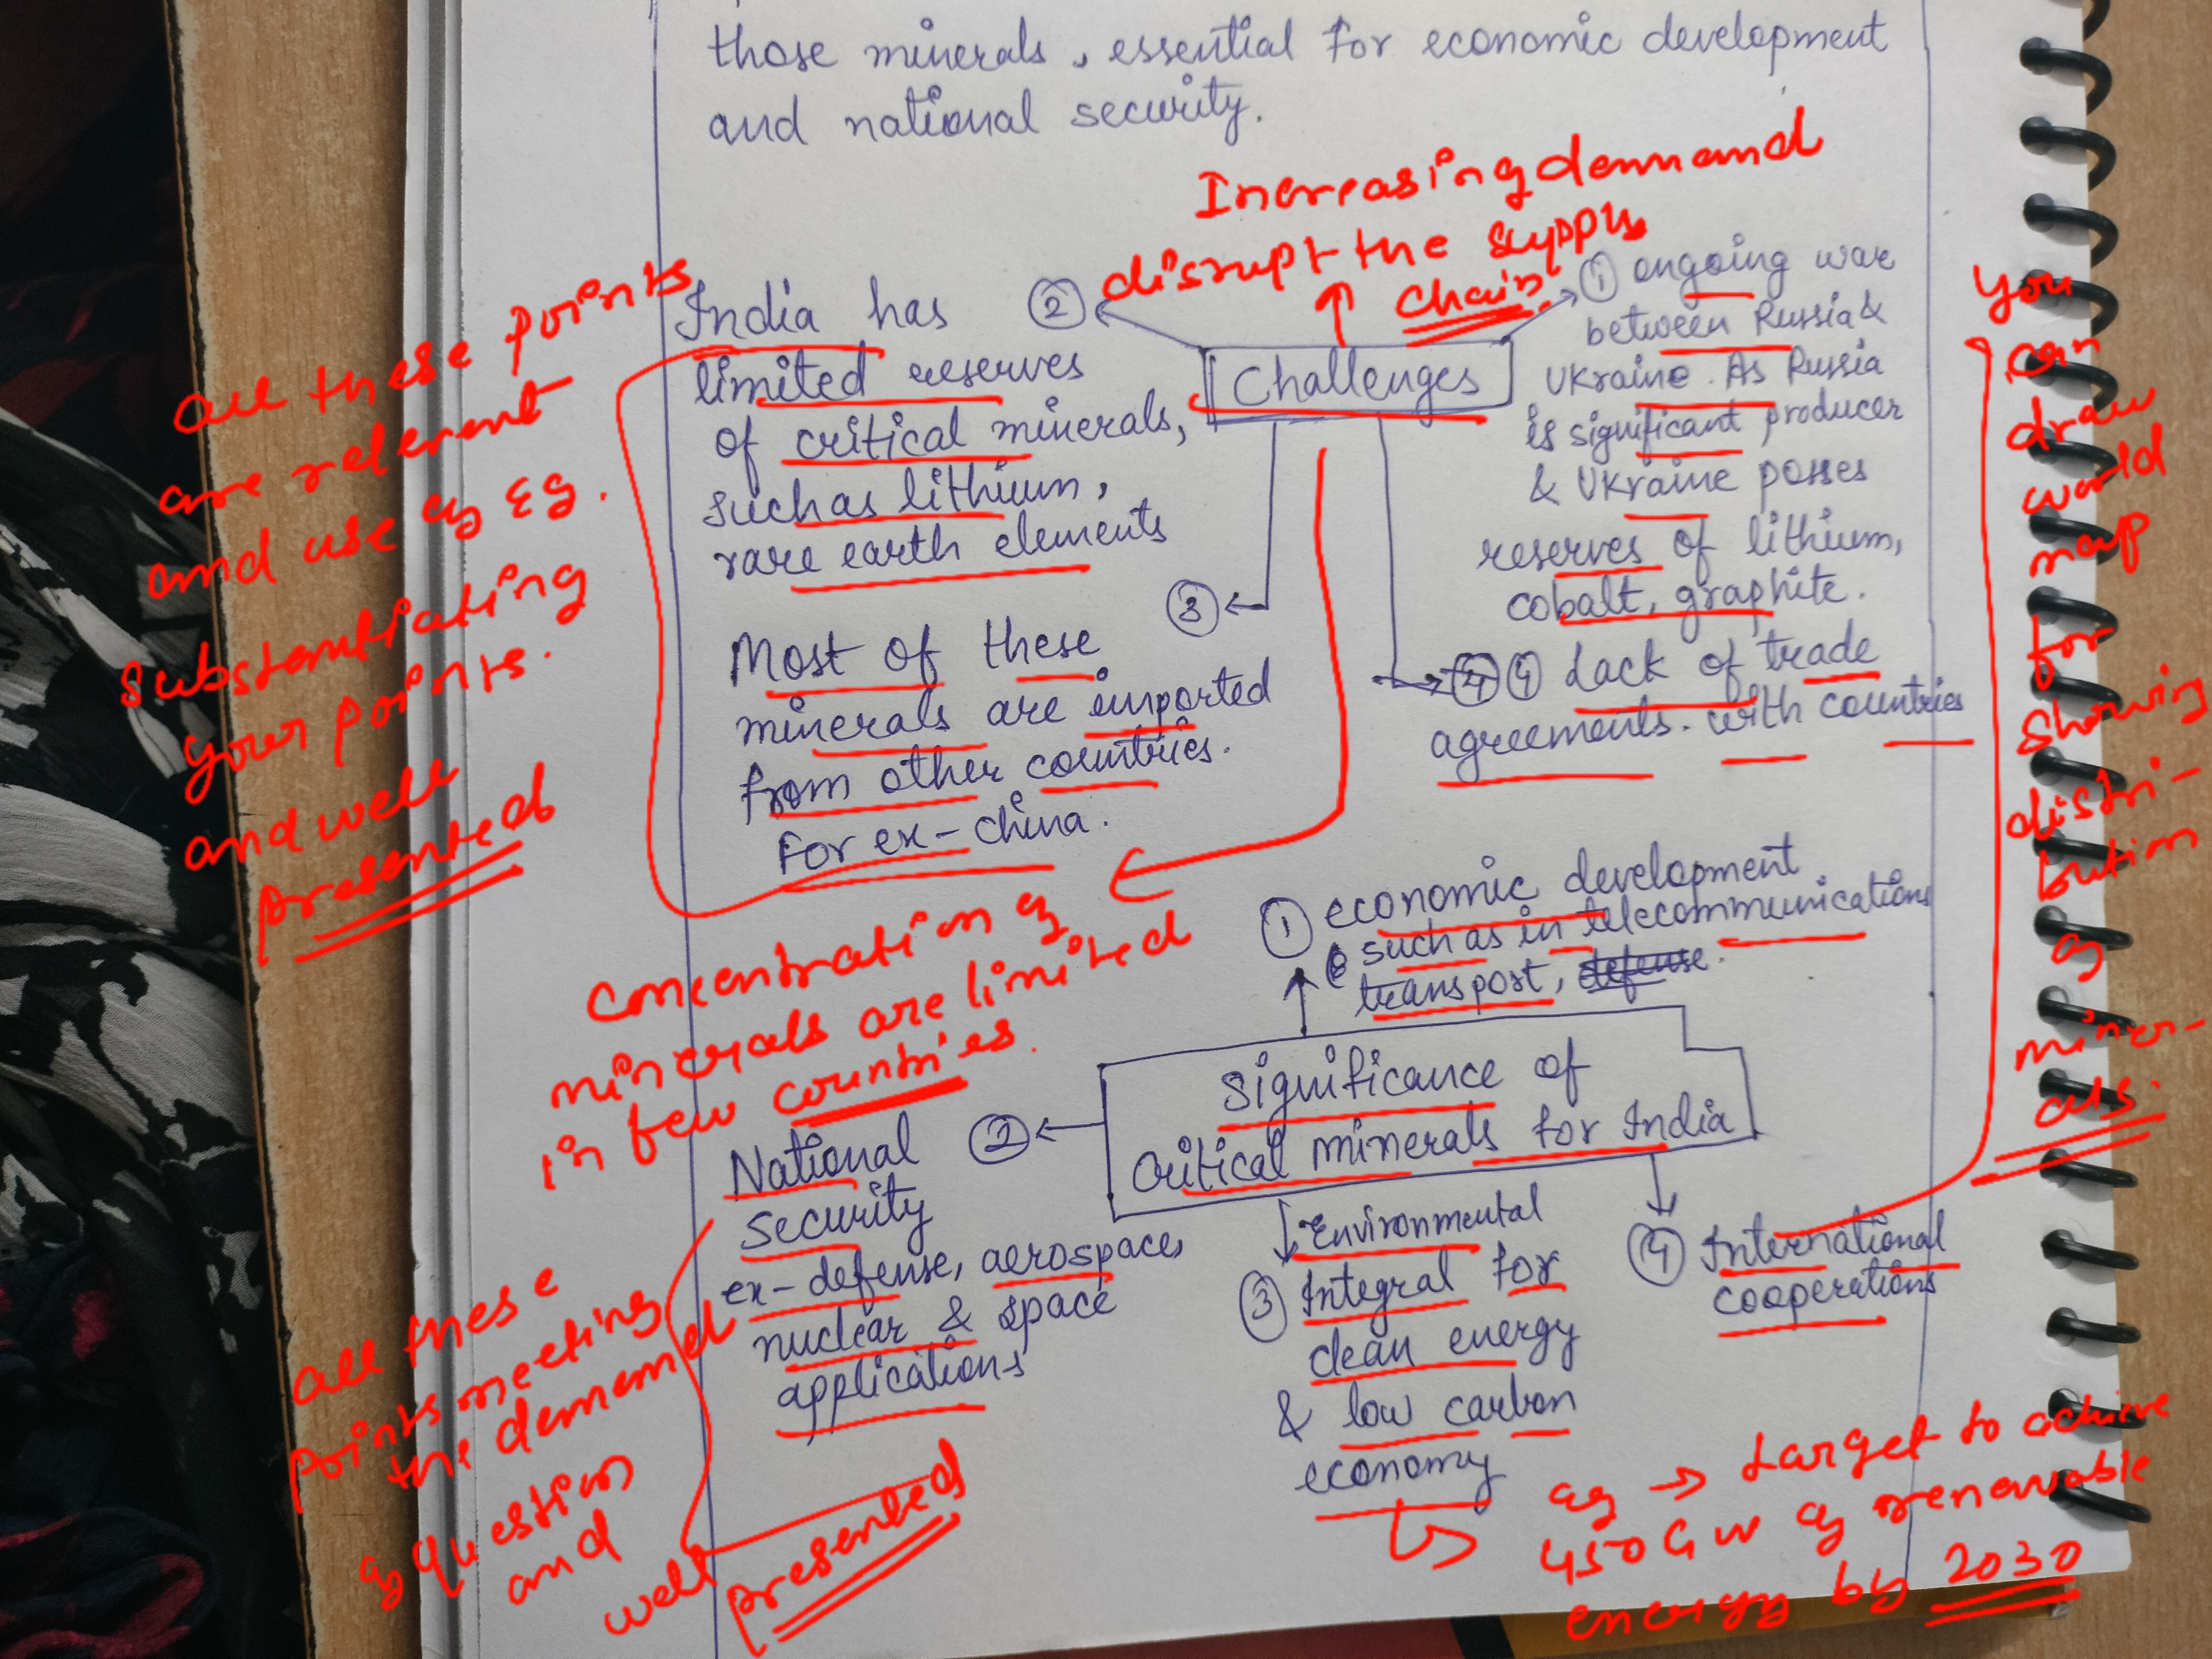 those minerals, essential for economic development
and national security.
Increasing demand
disrupt the supply
chain.
Challenges
① ongoing war
between Russia &
Ukraine. As Russia
is significant producer
& Ukraine posses
reserves of lithium,
cobalt, graphite.
②
India has
limited reserves
of critical minerals,
such as lithium,
rare earth elements
③
Most of these
minerals are imported
from other countries.
For ex- China.
④ Lack of trade
agreements. with countries
all these points
are relevent
and use of Eg.
substantiating
your points.
and well
presented
You
can
draw
world
map
for
showing
distri-
bution
of
miner-
als.
Concentration of
minerals are limited
in few countries.
Significance of
Critical minerals for India
① economic development
such as in telecommunications
transport, defense.
②
National
security
ex- defense, aerospace,
nuclear & space
applications
Environmental
③ Integral for
clean energy
& low carbon
economy
④ International
cooperations
all these
points meeting
the demand
of question
and
well
presented
eg → target to achieve
450 GW of renewable
energy by 2030